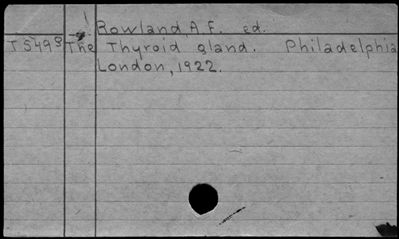 Rowland, A.F. ed.
The Thyroid gland. Philadelphia
London, 1922.